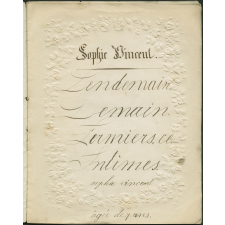 Sophie Vincent.
Lendemain
Demain.
Larmiers, ce
Intimes
sophie vincent
agée de 9 ans.